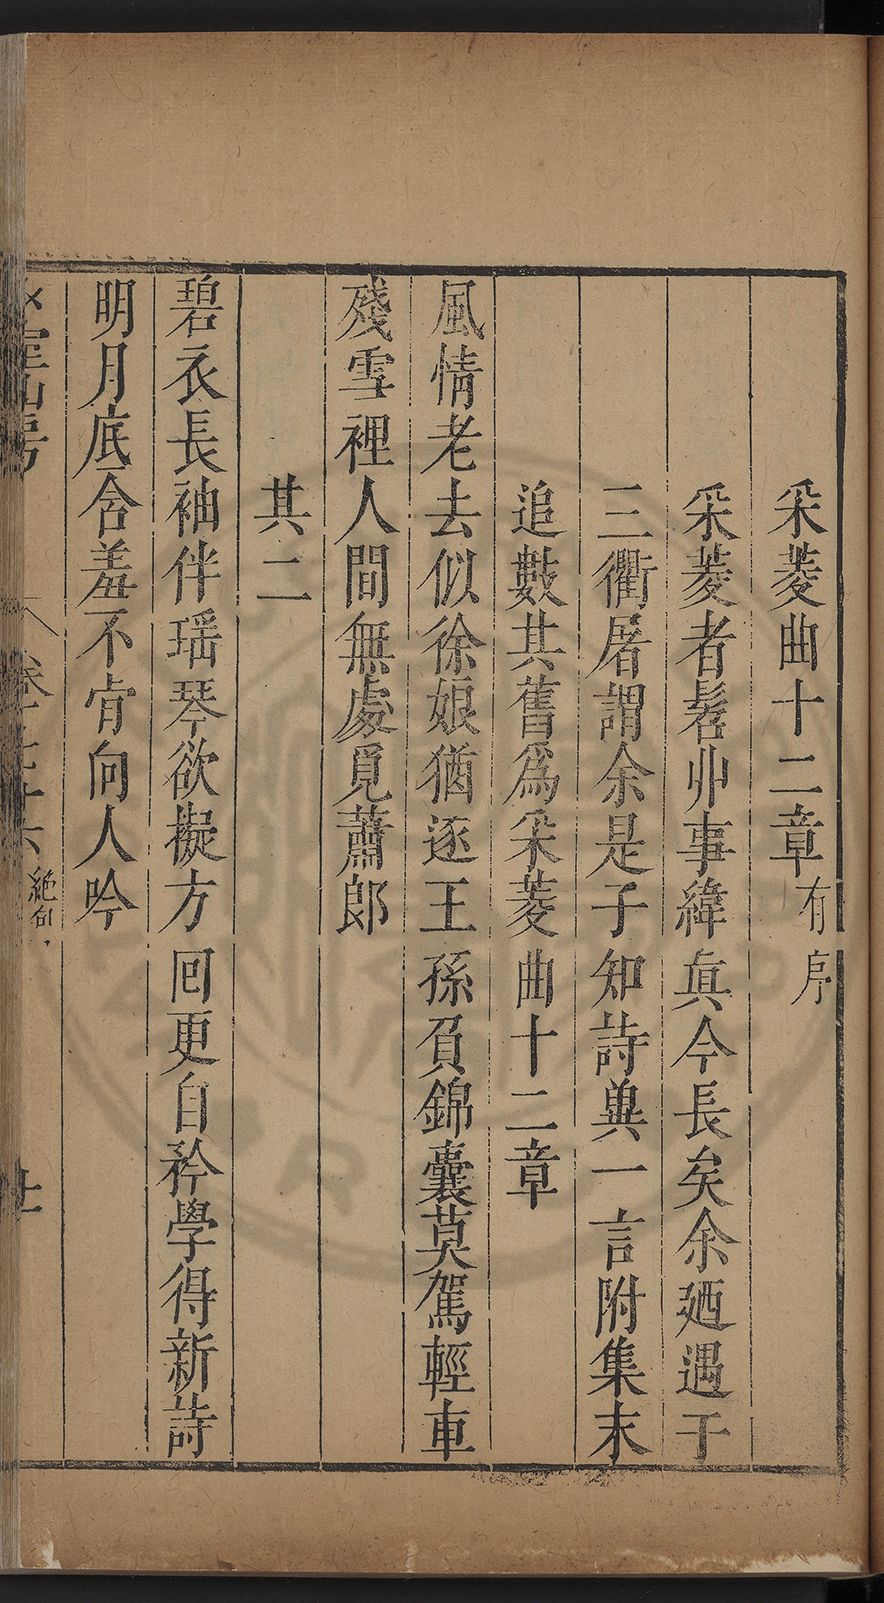 采菱曲十二章有序
采菱者髫丱事緯真今長矣余廼遇于
三衢屠謂余是子知詩異一言附集末
追數其舊爲采菱曲十二章
風情老去似徐娘猶逐王孫負錦囊莫駕輕車
殘雪裡人間無處覓蕭郎
其二
碧衣長袖伴瑶琴欲擬方囘更自矜學得新詩
明月底含羞不肯向人吟
絶句